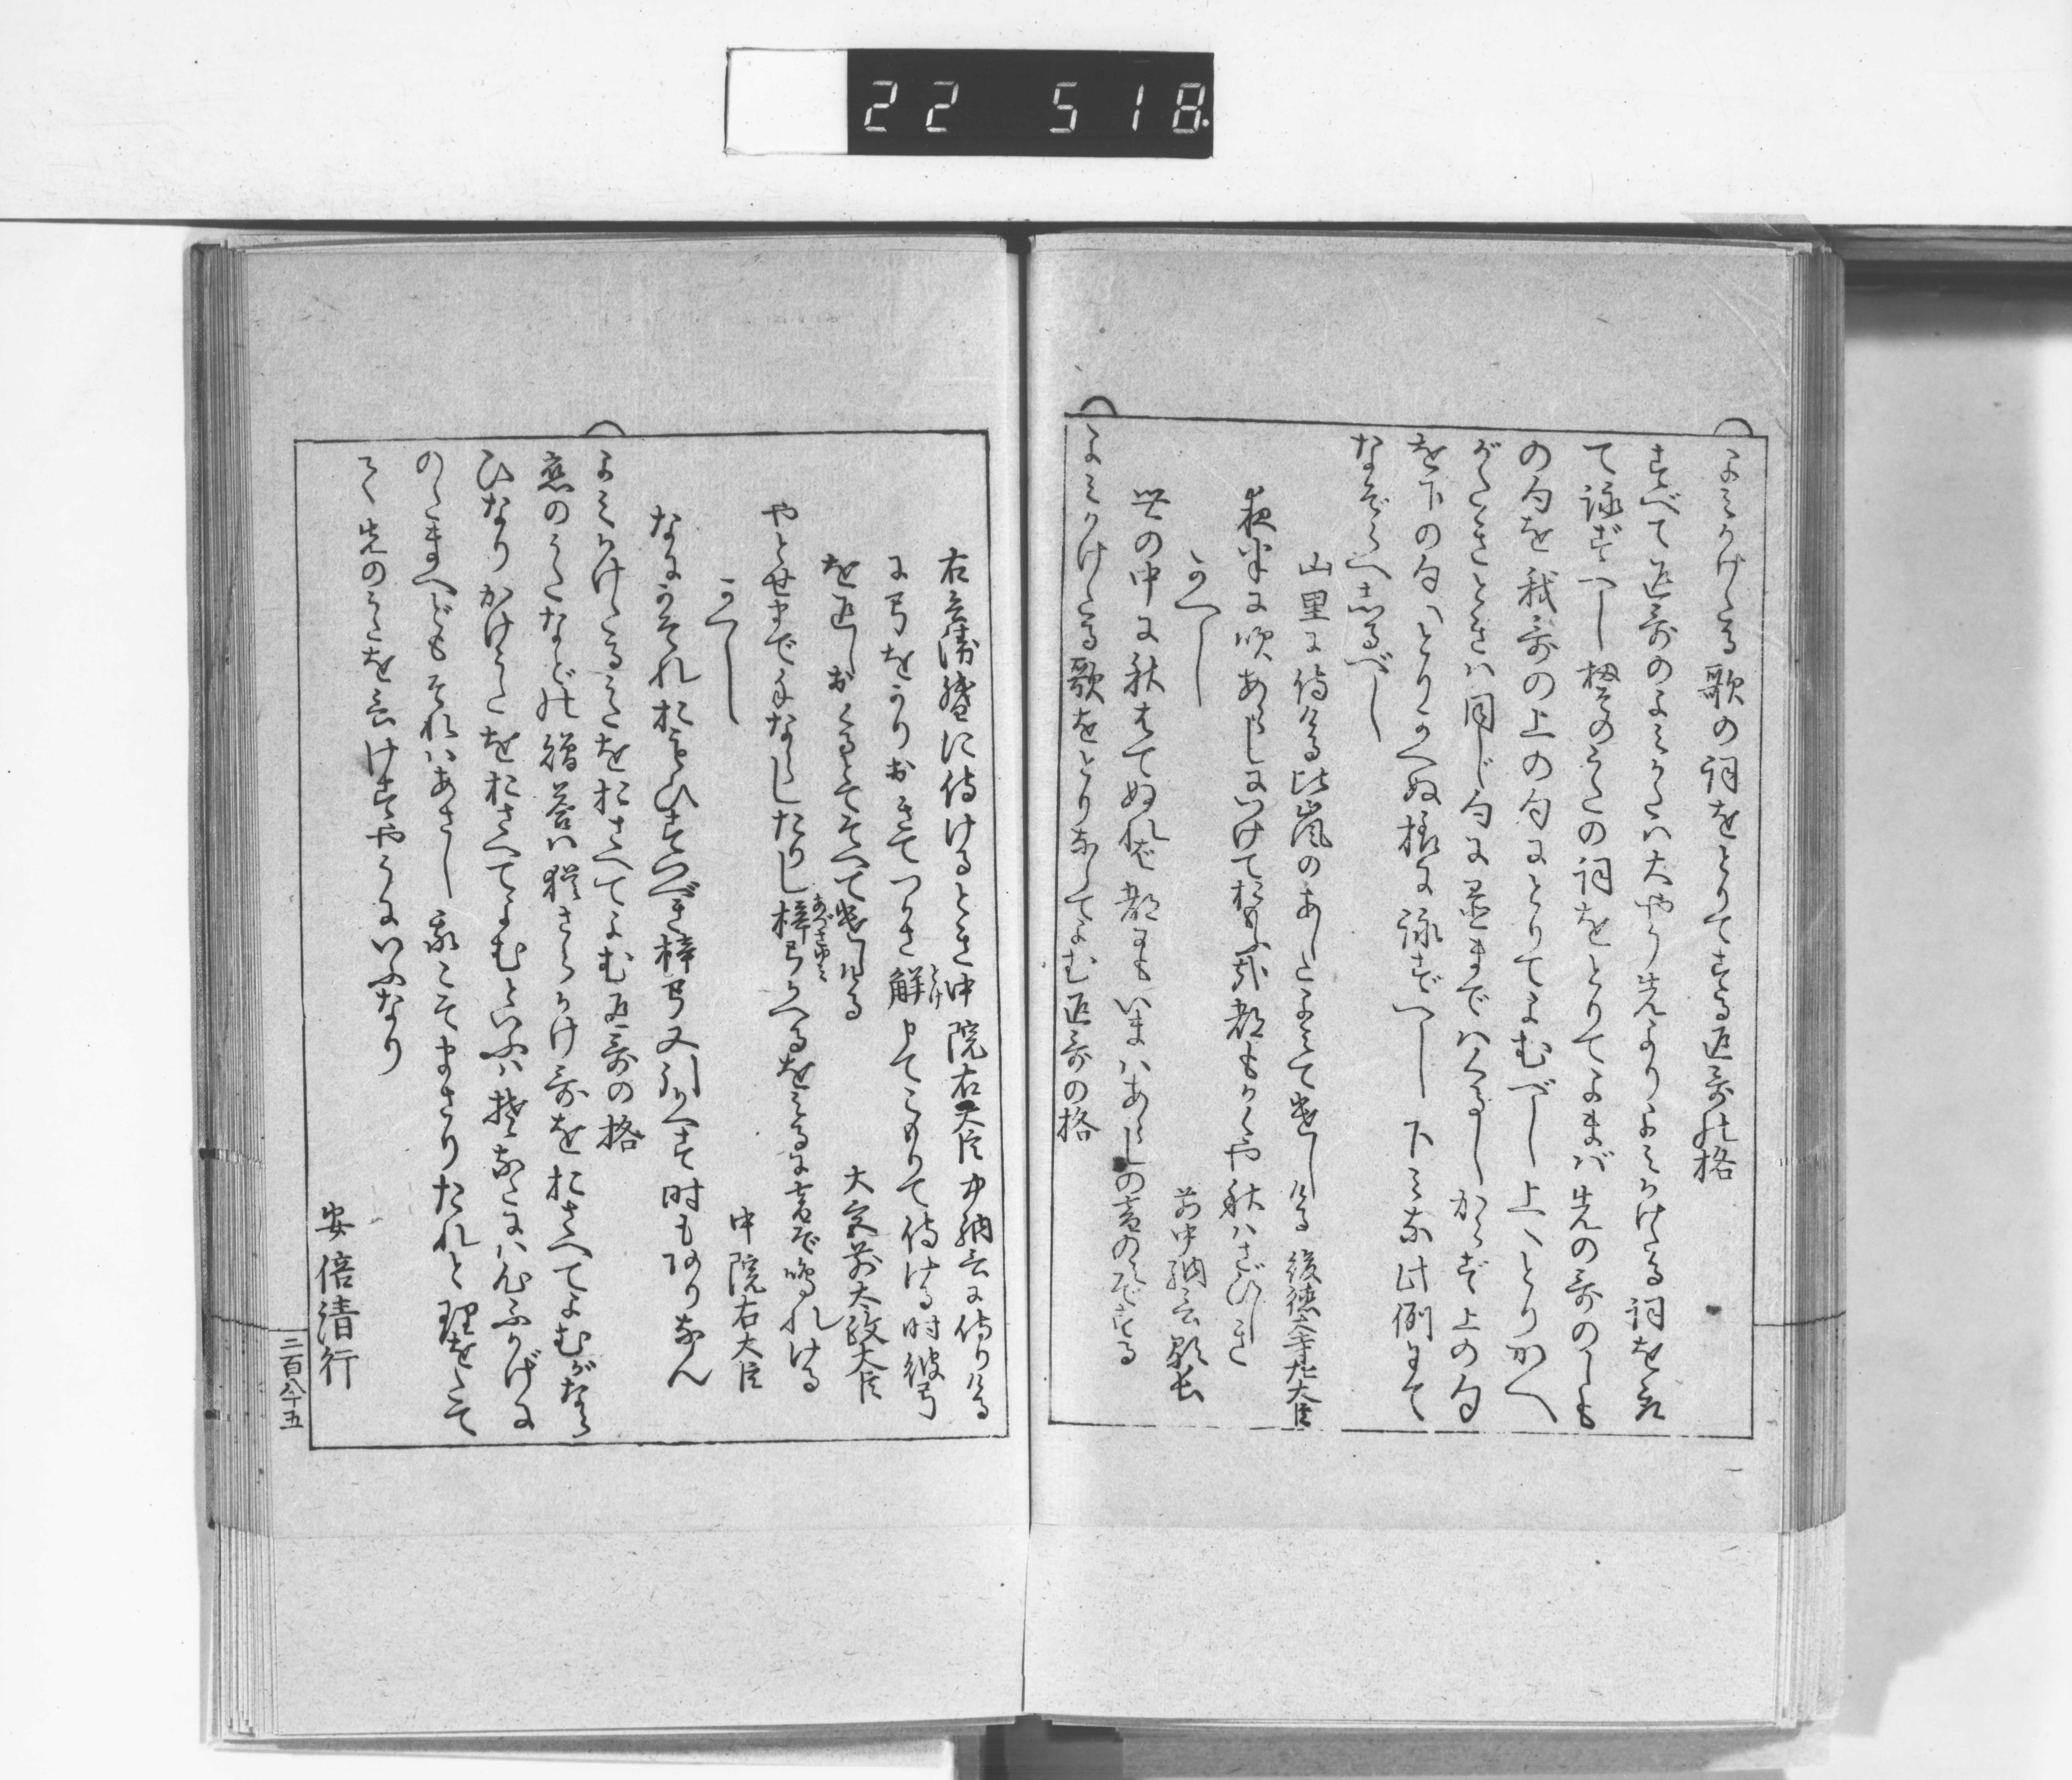 22 518
よみかけたる歌の詞をとりてする返哥の格
すべて返哥のよみかたハ大やう先よりよみかけたる詞を
て詠ずべし扨そのうたの詞をとりてよまバ先の哥のしも
の句を我哥の上の句にとりてよむべし上ハとりかへ
がたきときハ同じ句に置までハくるしからず上の句
を下の句ハとりかへぬ様に詠ずべし下ミな此例にて
なぞらへしるべし
山里に侍ける比嵐のあしたよみて遣しける 後徳大寺左大臣
夜半に吹あらしにつけておもふ哉都もかくや秋ハさびしき
かへし 前中納言顕長
世の中に秋はてぬれば都にもいまハあらしの音のみぞする
よみかけたる歌をとりなしてよむ返哥の格
右兵衛督に侍けるとき中院右大臣中納言に侍りける
に弓をかりおきてつかさ解とけてこもりて侍ける時彼弓
を返しおくるとてそへて遣しける 大宮前太政大臣
やとせまで手ならしたりし梓弓あづさゆみかへるをみるに音ぞ鳴れける
かへし 中院右大臣
なにかそれおもひすつべき梓弓又引かへす時もありなん
よみかけたるうたをおさへてよむ返哥の格
恋のうたなどの贈答ハ猶さらかけ哥をおさへてよむがなら
ひなりかけうたをおさへてよむといふハ
のたまへどもそれハあさし我こそまさりたれと理をたて
て先のうたを言けすやうにいふなり
安倍清行
二百八十五